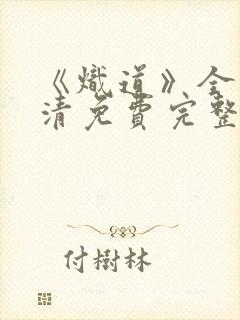 《熾道》全
清免費完整
付樹林